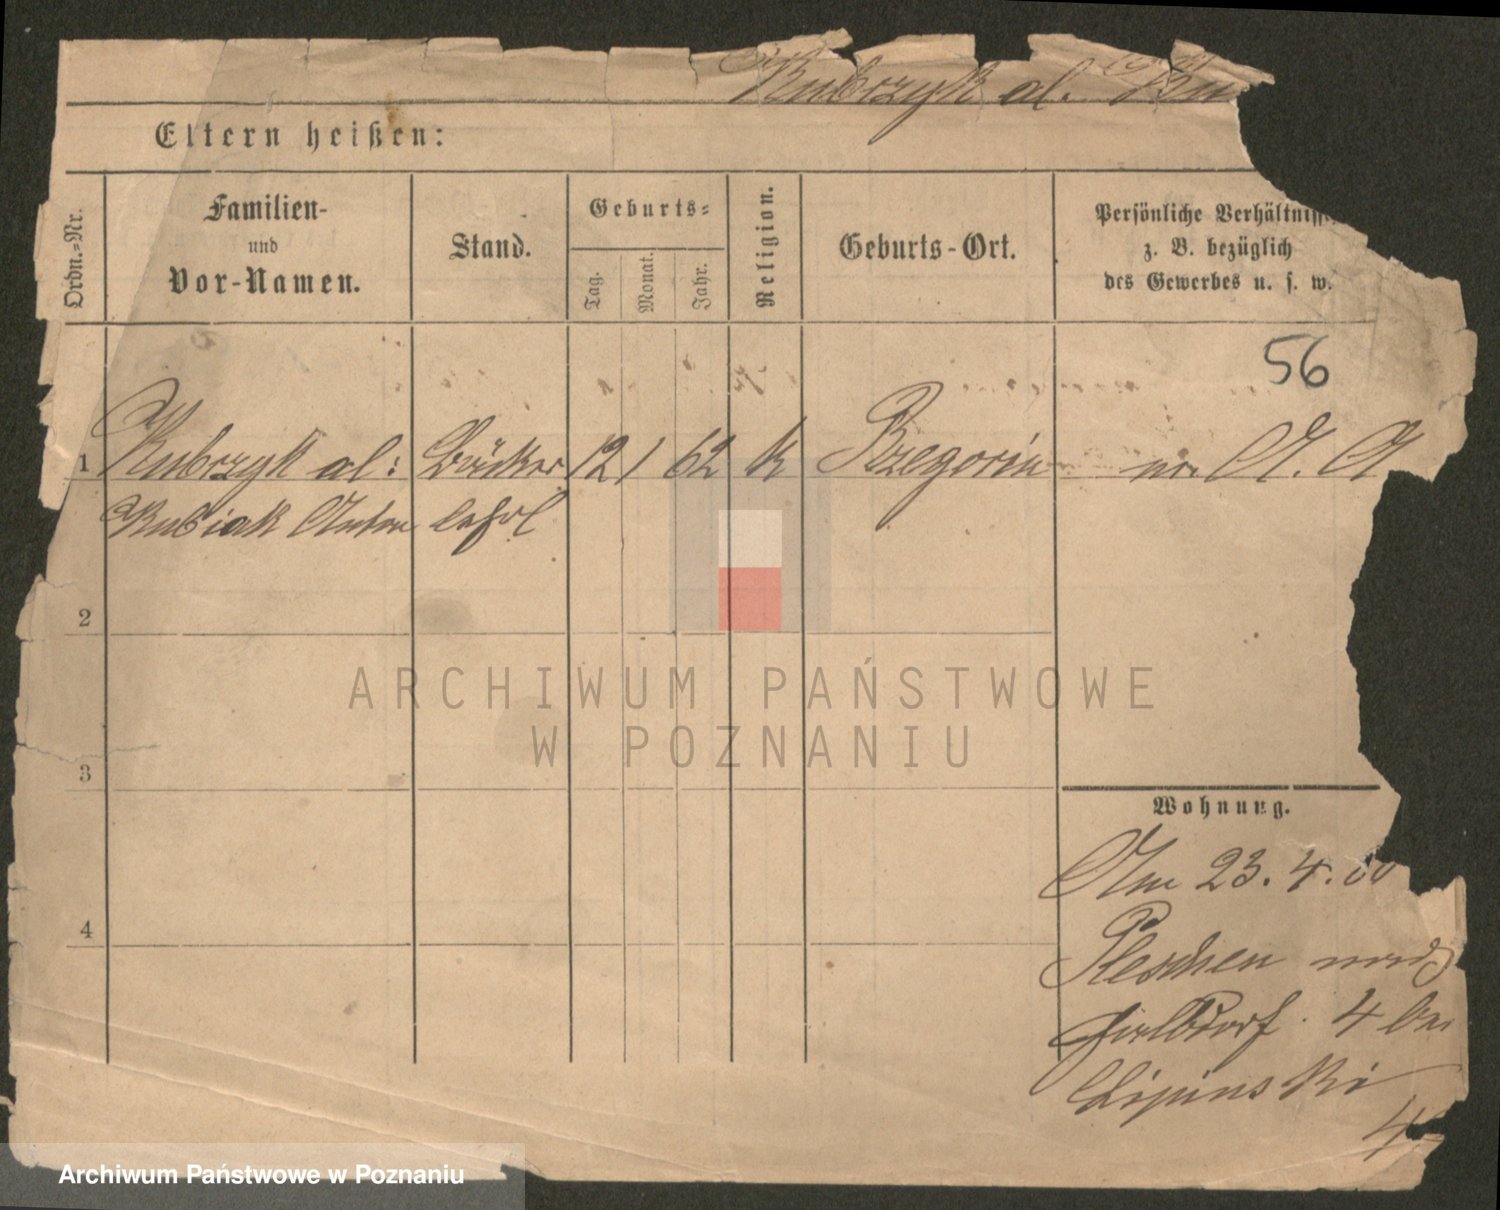 Kubrzyk al. Ku
Eltern heißen:
Ordn.-Nr.
Familien-
und
Vor-Namen.
Stand.
Geburts-
Tag.
Monat.
Jahr.
Religion.
Geburts-Ort.
Persönliche Verhältniss
z. B. bezüglich
des Gewerbes u. s. w.
56
1 Kubrzyk al: Bäcker 12 1 62 k A. A
Kubiak Anton
2
3
4
Wohnung.
Am 23. 4. 00
Pleschen
4
Lipinski
4
ARCHIWUM PAŃSTWOWE
W POZNANIU
Archiwum Państwowe w Poznaniu